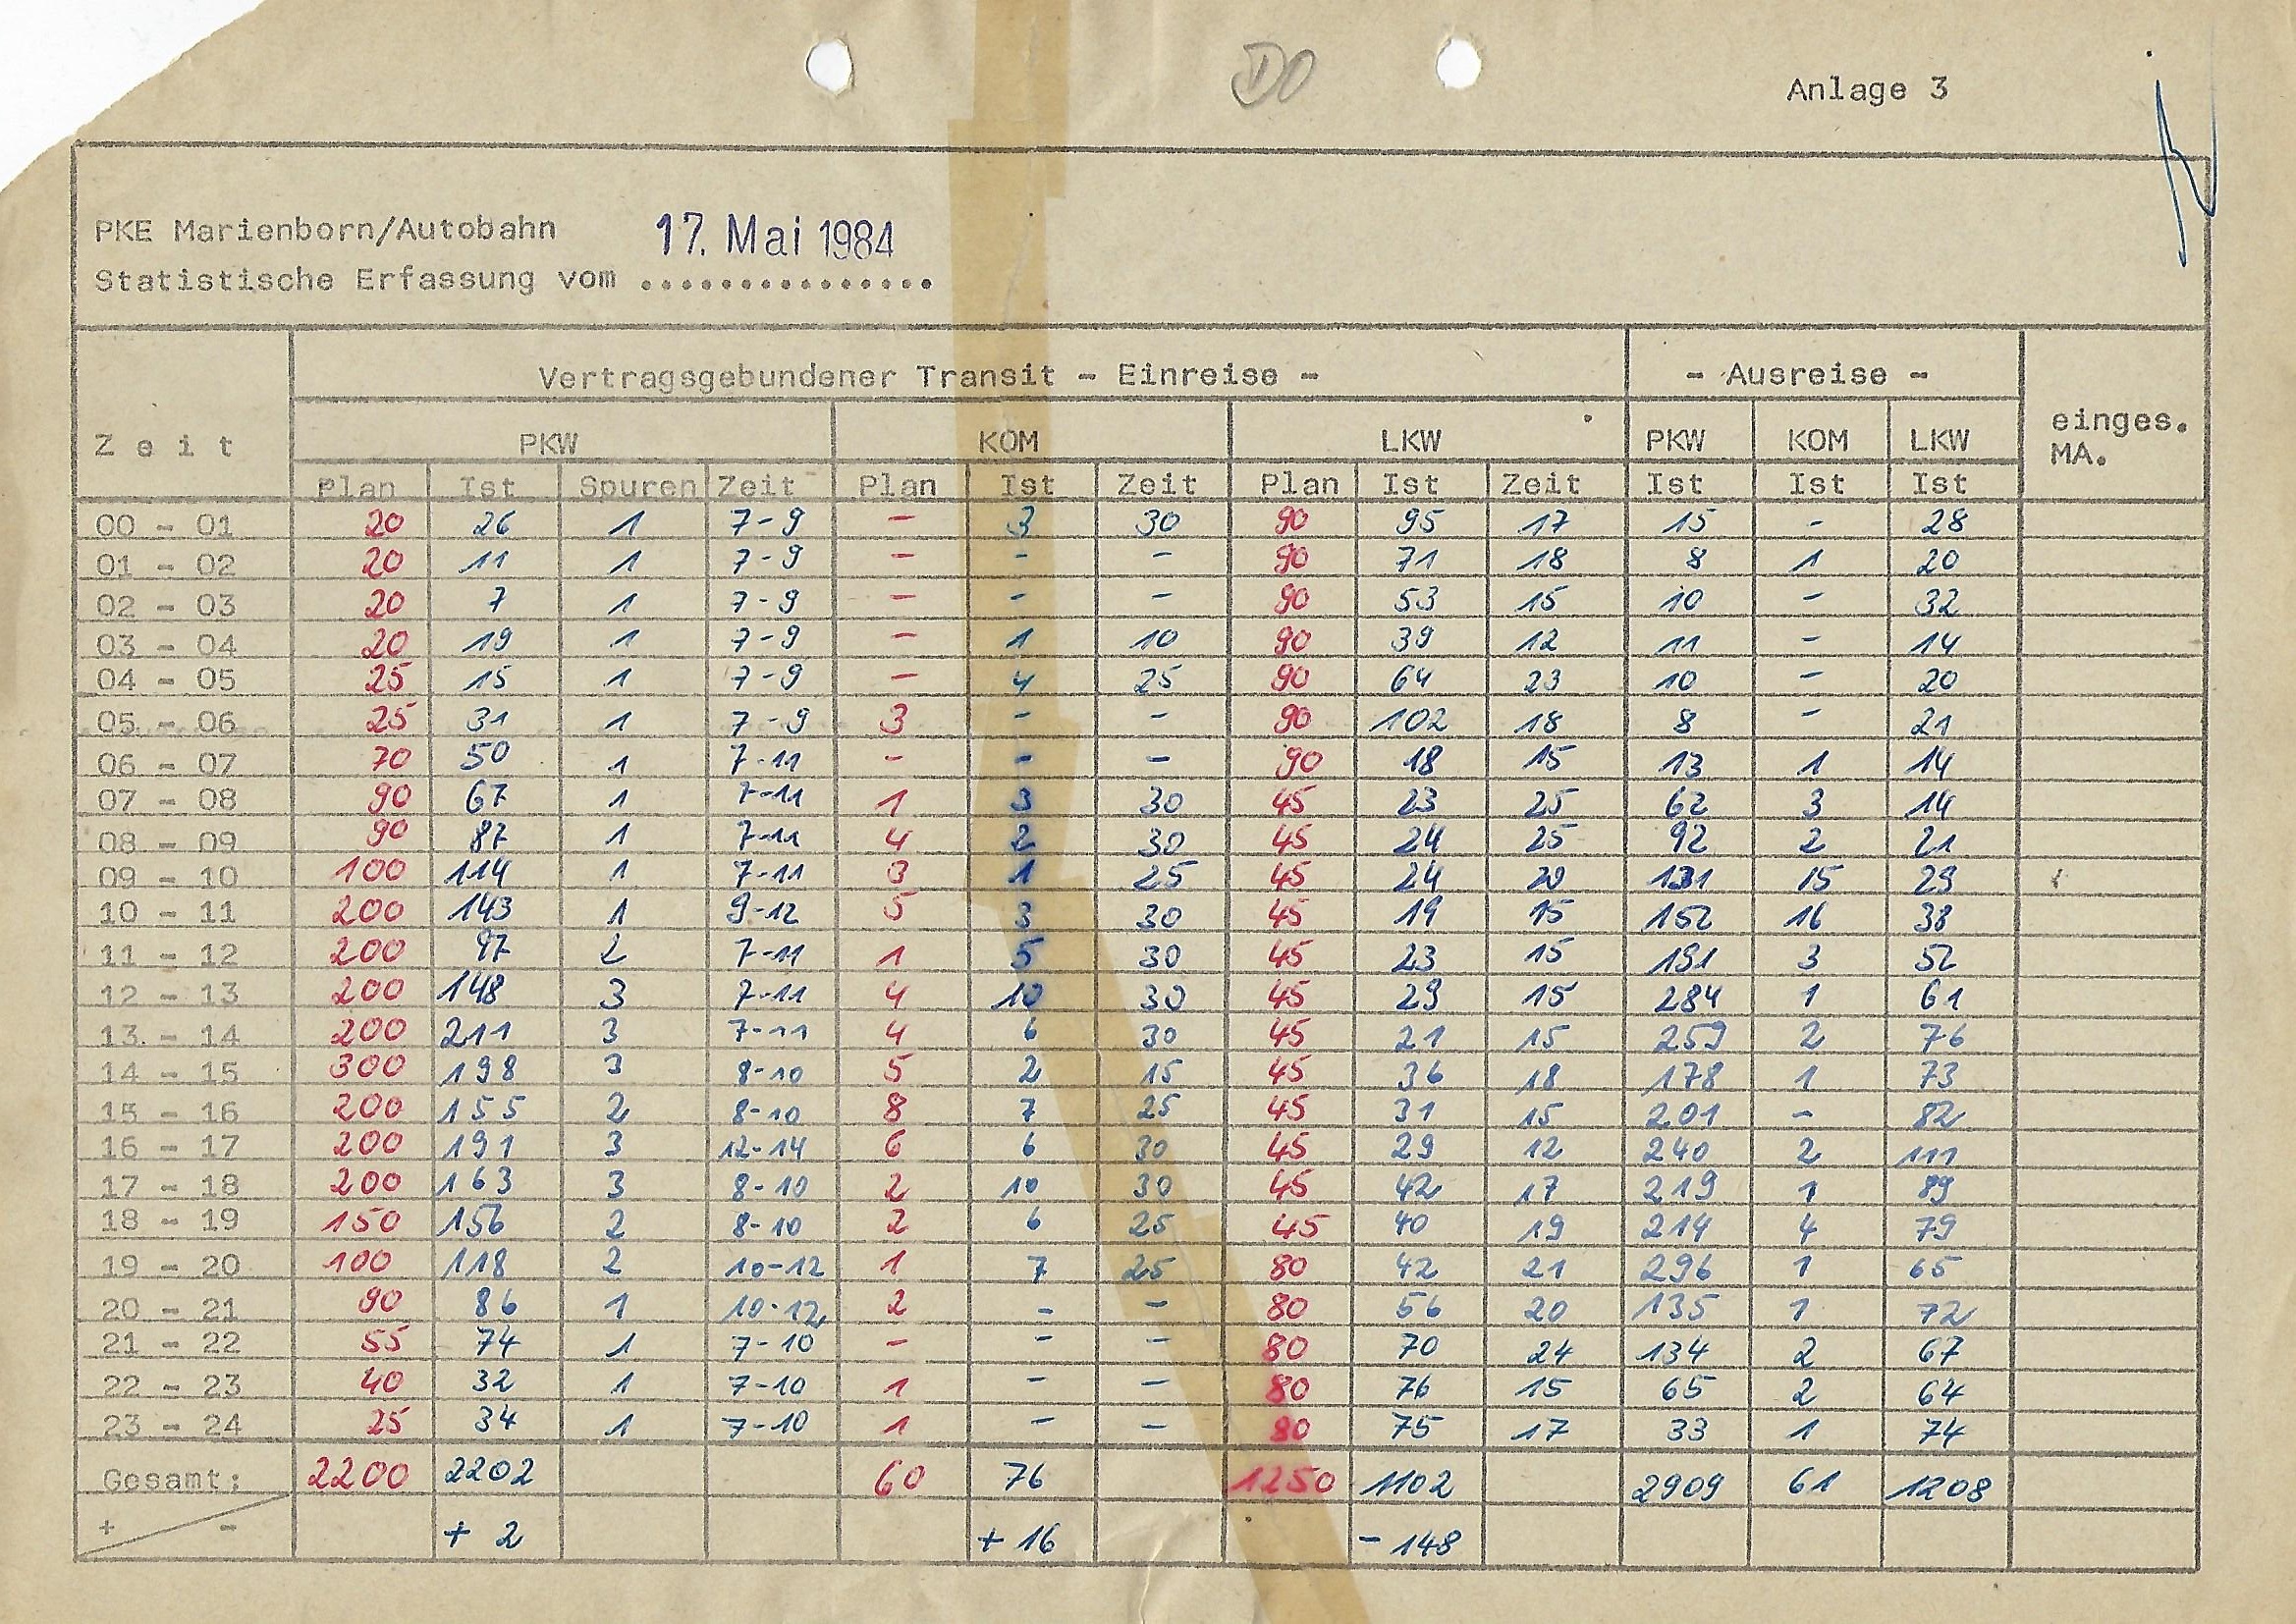 DO
Anlage 3
PKE Marienborn/Autobahn 17. Mai 1984
Statistische Erfassung vom ...............
Vertragsgebundener Transit - Einreise - - Ausreise -
Zeit PKW KOM LKW PKW KOM LKW einges. MA.
Plan Ist Spuren Zeit Plan Ist Zeit Plan Ist Zeit Ist Ist Ist
00 - 01 20 26 1 7-9 - 3 30 90 95 17 15 - 28
01 - 02 20 11 1 7-9 - - - 90 71 18 8 1 20
02 - 03 20 7 1 7-9 - - - 90 53 15 10 - 32
03 - 04 20 19 1 7-9 - 1 10 90 39 12 11 - 14
04 - 05 25 15 1 7-9 - 4 25 90 64 23 10 - 20
05 - 06 25 31 1 7-9 3 - - 90 102 18 8 - 21
06 - 07 70 50 1 7-11 - - - 90 18 15 13 1 14
07 - 08 90 67 1 7-11 1 3 30 45 23 25 62 3 14
08 - 09 90 87 1 7-11 4 2 30 45 24 25 92 2 21
09 - 10 100 114 1 7-11 3 1 25 45 24 20 131 15 29
10 - 11 200 143 1 9-12 5 3 30 45 19 15 152 16 38
11 - 12 200 97 2 7-11 1 5 30 45 23 15 191 3 52
12 - 13 200 148 3 7-11 4 10 30 45 29 15 284 1 61
13 - 14 200 211 3 7-11 4 6 30 45 21 15 259 2 76
14 - 15 300 198 3 8-10 5 2 15 45 36 18 178 1 73
15 - 16 200 155 2 8-10 8 7 25 45 31 15 201 - 82
16 - 17 200 191 3 12-14 6 6 30 45 29 12 240 2 111
17 - 18 200 163 3 8-10 2 10 30 45 42 17 219 1 89
18 - 19 150 156 2 8-10 2 6 25 45 40 19 214 4 79
19 - 20 100 118 2 10-12 1 7 25 80 42 21 296 1 65
20 - 21 90 86 1 10-12 2 - - 80 56 20 135 1 72
21 - 22 55 74 1 7-10 - - - 80 70 24 134 2 67
22 - 23 40 32 1 7-10 1 - - 80 76 15 65 2 64
23 - 24 25 34 1 7-10 1 - - 80 75 17 33 1 74
Gesamt: 2200 2202 60 76 1250 1102 2909 61 1208
+ - + 2 + 16 - 148